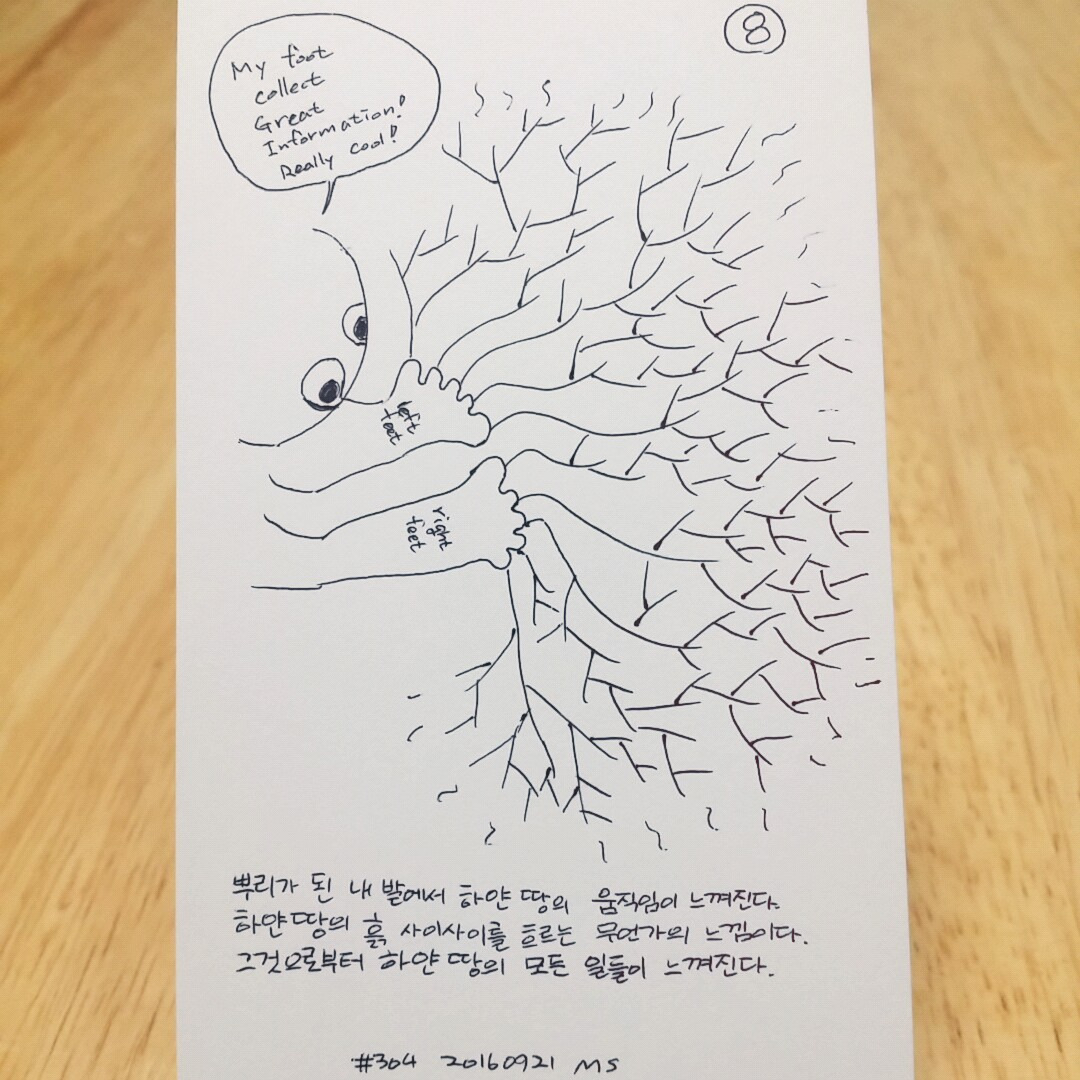 8
My foot
collect
Great
Information!
Really cool!
left
feet
right
feet
뿌리가 된 내 발에서 하얀 땅의 움직임이 느껴진다.
하얀 땅의 흙 사이사이를 흐르는 무언가의 느낌이다.
그것으로부터 하얀 땅의 모든 일들이 느껴진다.
#304 20160921 MS